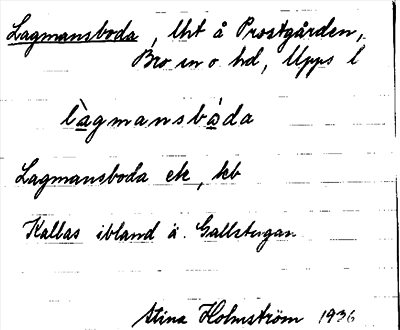 Lagmansboda, Uht å Prostgården,
Bro sn o hd, Upps l
làgmansbàda
Lagmansboda ek, kb
Kallas ibland ä. Gallstugan
Stina Holmström 1936